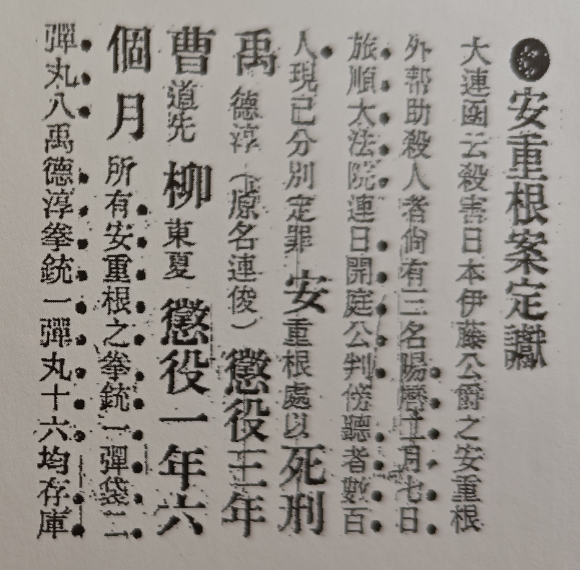 安重根案定讞
大連函云殺害日本伊藤公爵之安重根
外帮助殺人者尙有三名陽曆月七日
旅順太法院連日開庭公判傍聽者數百
人現已分別定罪 安重根處以死刑
禹德淳(原名連俊)懲役三年
曹道先 柳東夏 懲役一年六
個月 所有安重根之拳銃一彈袋二
彈丸八禹德淳拳銃一彈丸十六均存庫